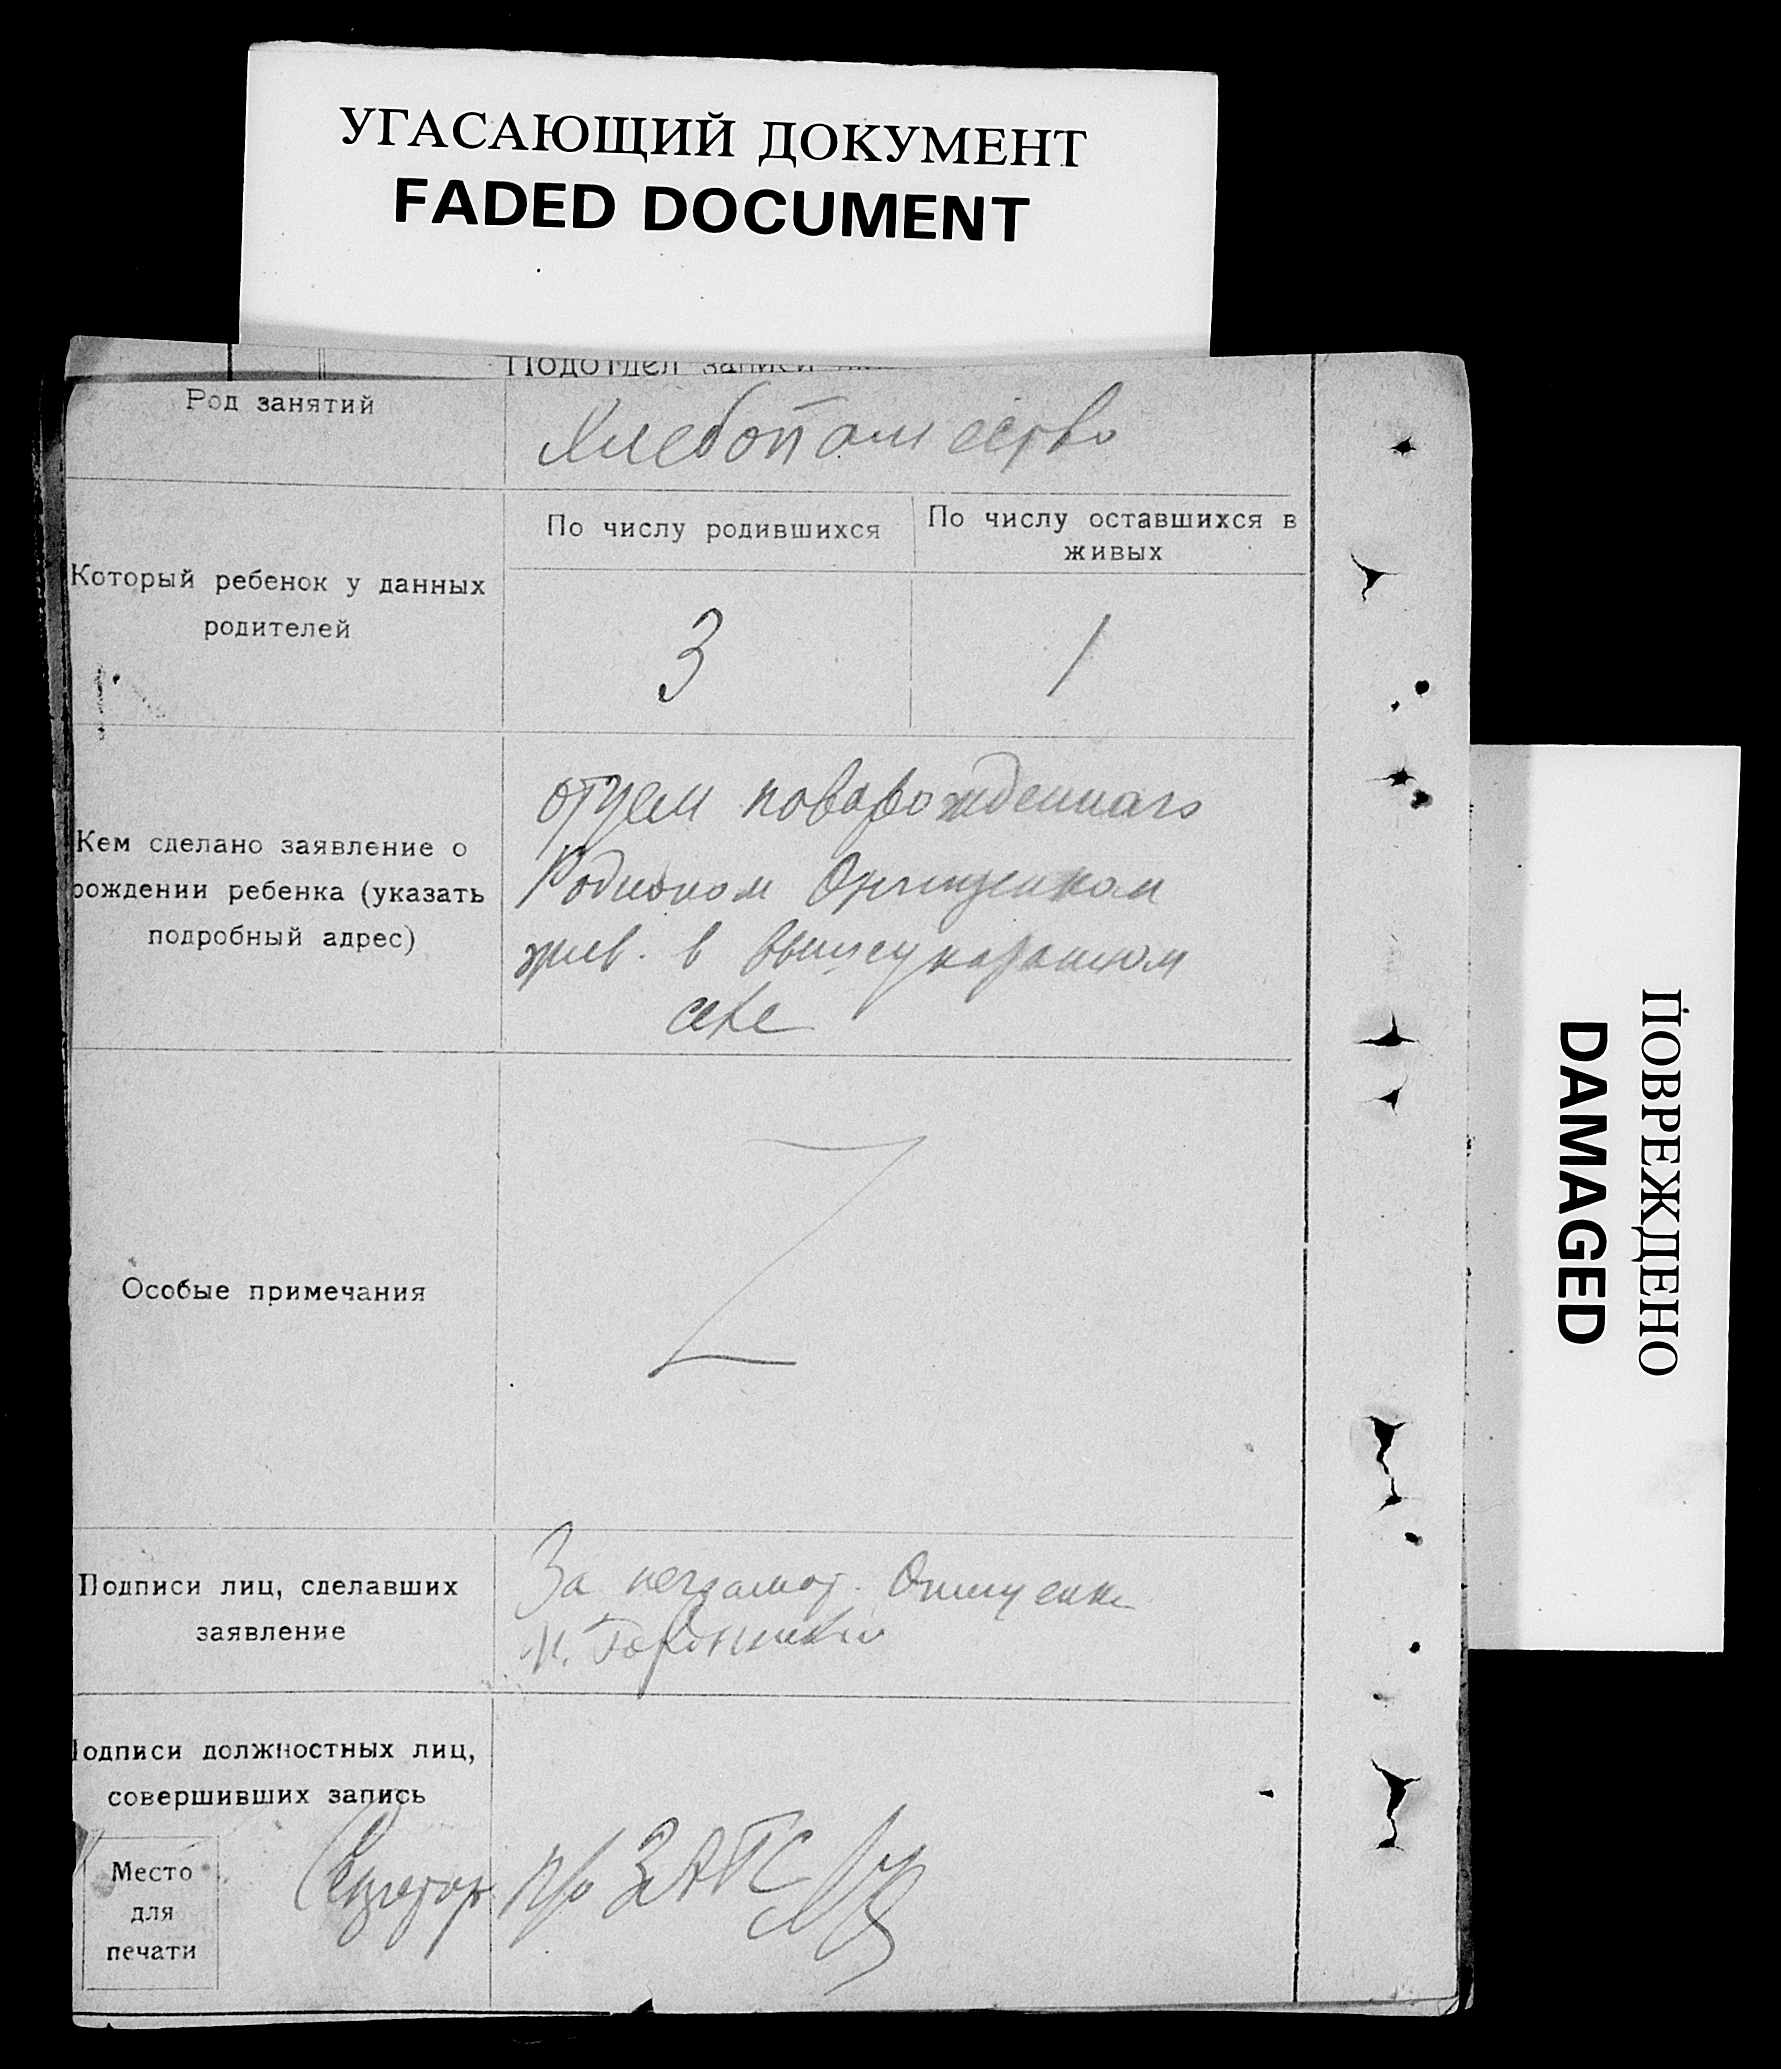 УГАСАЮЩИЙ ДОКУМЕНТ
FADED DOCUMENT
Подотдел записи
Род занятий
Хлебопашество
Который ребенок у данных
родителей
По числу родившихся
По числу оставшихся в
живых
3
1
Кем сделано заявление о
рождении ребенка (указать
подробный адрес)
отцем новорожденнаго
Родионом Онищенком
жив. в вышеуказаном
селе
Особые примечания
Подписи лиц, сделавших
заявление
За неграмот. Онищенко
Подписи должностных лиц,
совершивших запись
Место
для
печати
Секретарь п/о ЗАГС
ПОВРЕЖДЕНО
DAMAGED